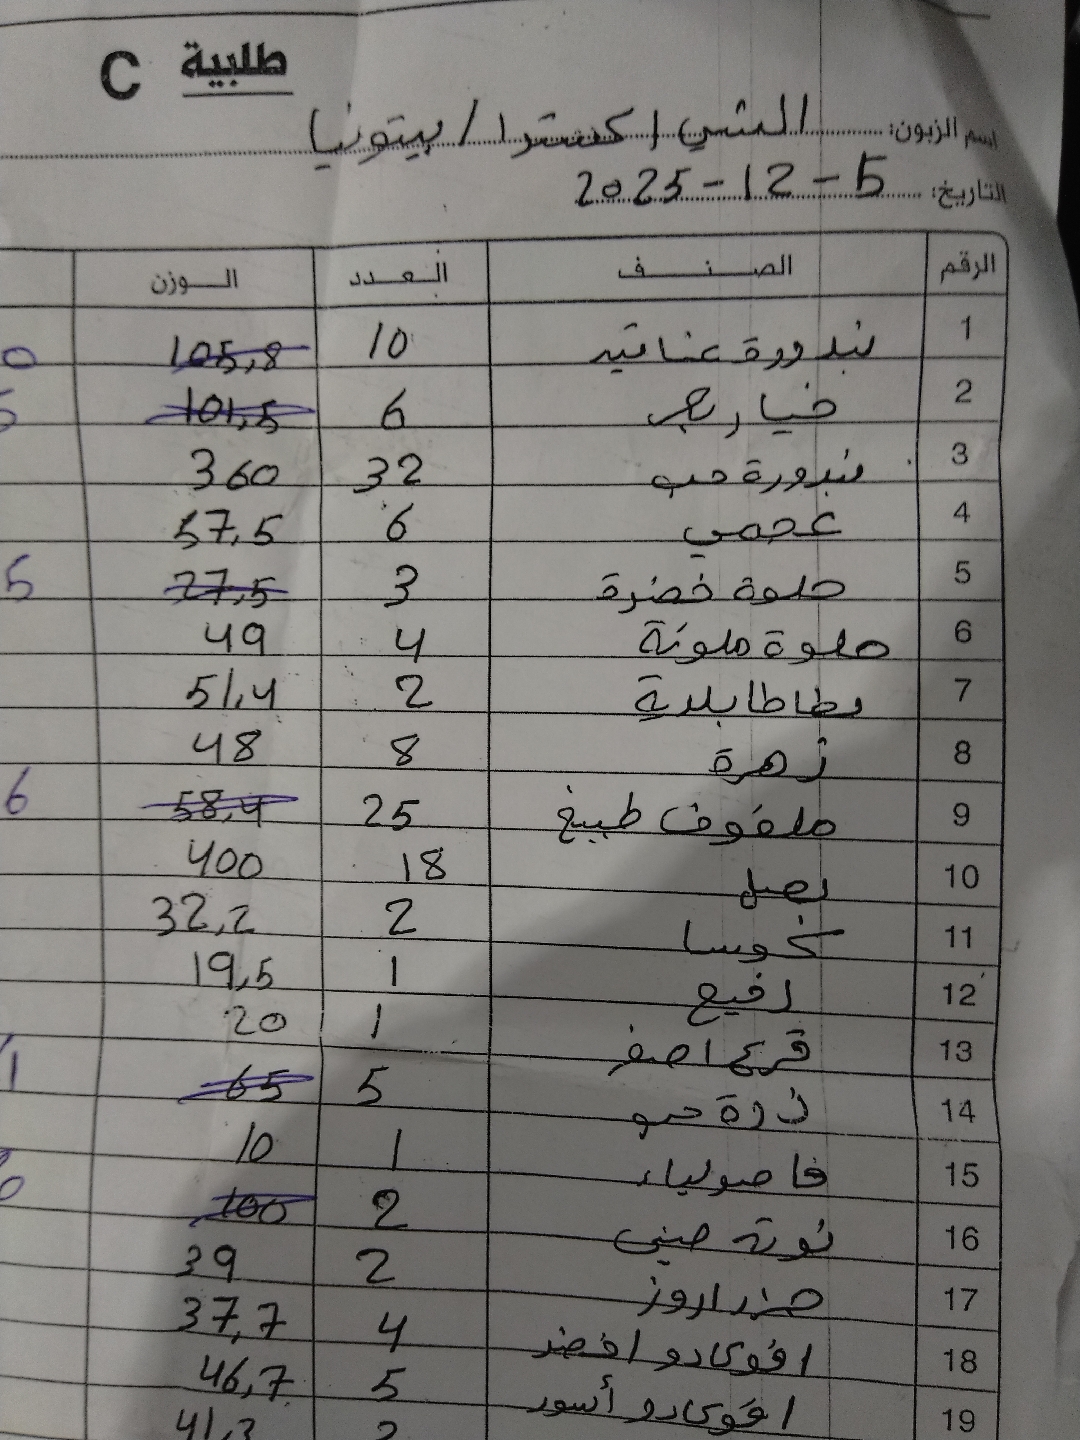 طلبية C
اسم الزبون: الشني اكسترا / بيتونيا
التاريخ: 5-12-2025
الرقم الصنف العدد الوزن
1 بندورة عناقيد 10 105,8
2 خيار 6 101,5
3 بندورة حب 32 360
4 عجمي 6 57,5
5 حلوة خضرة 3 27,5
6 حلوة ملونة 4 49
7 بطاطا بلدية 2 51,4
8 زهرة 8 48
9 ملفوف طبيخ 25 58,4
10 بصل 18 400
11 كوسا 2 32,2
12 رفيع 1 19,5
13 قرع اصفر 1 20
14 ذرة 5 65
15 فاصولياء 1 10
16 صيني 2 100
17 2 39
18 افوكادو اخضر 4 37,7
19 افوكادو أسود 5 46,7